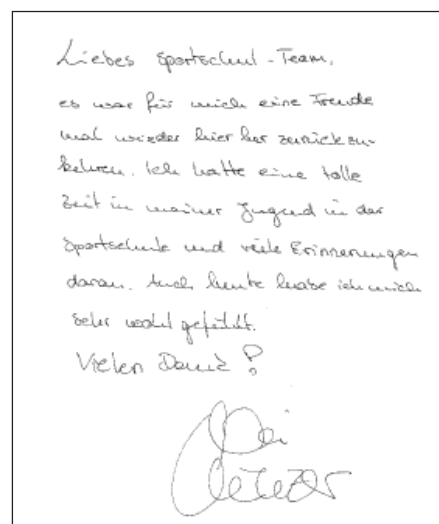 Liebes Sportschul-Team,
es war für mich eine Freude
mal wieder hier her zurückzu-
kehren. Ich hatte eine tolle
Zeit in meiner Jugend in der
Sportschule und viele Erinnerungen
daran. Auch heute habe ich mich
sehr wohl gefühlt.
Vielen Dank!